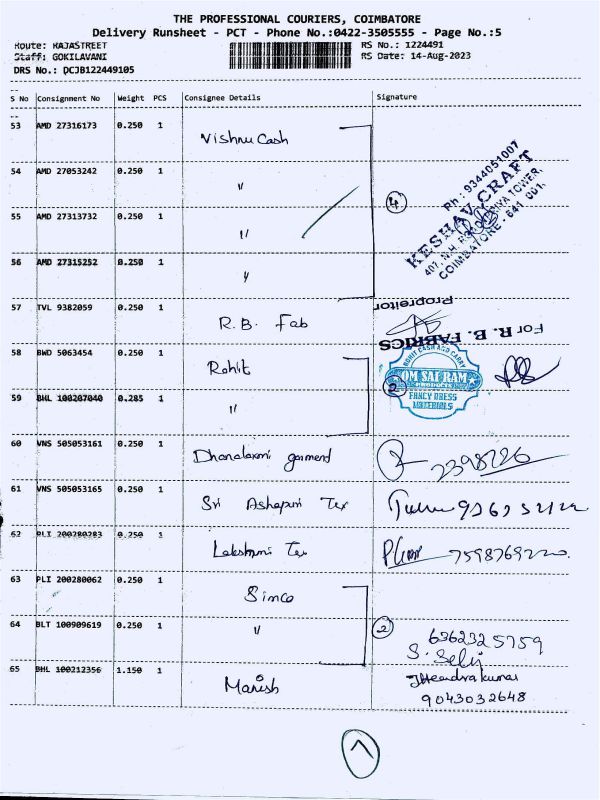 THE PROFESSIONAL COURIERS, COIMBATORE
Delivery Runsheet - PCT - Phone No.:0422-3505555 - Page No.:5
Route: RAJASTREET
RS No.: 1224491
Staff: GOKILAVANI
RS Date: 14-Aug-2023
DRS No.: DCJB122449105
S No Consignment No Weight PCS Consignee Details Signature
53 AMD 27316173 0.250 1 Vishnu Cash
54 AMD 27053242 0.250 1 〃
55 AMD 27313732 0.250 1 〃
56 AMD 27315252 0.250 1 〃
4
Ph : 9344051007
KESHAV CRAFT
COIMBATORE - 641 001.
57 TVL 9382059 0.250 1 R.B. Fab
Propreitor
For R. B. FABRICS
58 BWD 5063454 0.250 1 Rohit
59 BHL 100207040 0.285 1 〃
2
ROHIT CASH AND CARRY
OM SAI RAM
PRODUCTS
FANCY DRESS
MATERIALS
60 VNS 505053161 0.250 1 Dhanalaxmi garment
2398226
61 VNS 505053165 0.250 1 Sri Ashapuri Tex
62 PLI 200280283 0.250 1 Lakshmi Tex
63 PLI 200280062 0.250 1 Simco
64 BLT 100909619 0.250 1 〃
2
6362325759
S. Selvj
65 BHL 100212356 1.150 1 Manish
Jitendrakumar
9043032648